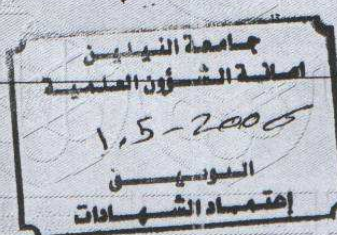 جامعة النيلين
امانة الشؤون العلمية
1,5-2006
إعتماد الشهادات